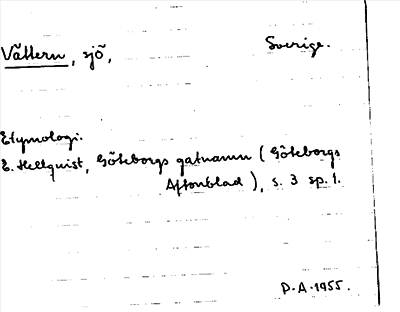 Vättern, sjö, Sverige.
Etymologi:
E. Hellquist, Göteborgs gatnamn (Göteborgs
Aftonblad), s. 3 sp. 1.
P.A. 1955.